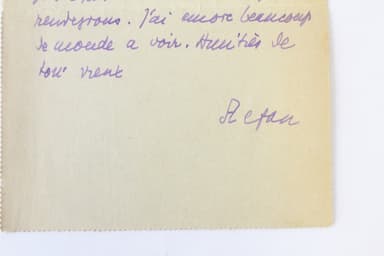 rendeyrons. J'ai encore beaucoup
de monde a voir. Amitiés de
ton vieux
Stefan